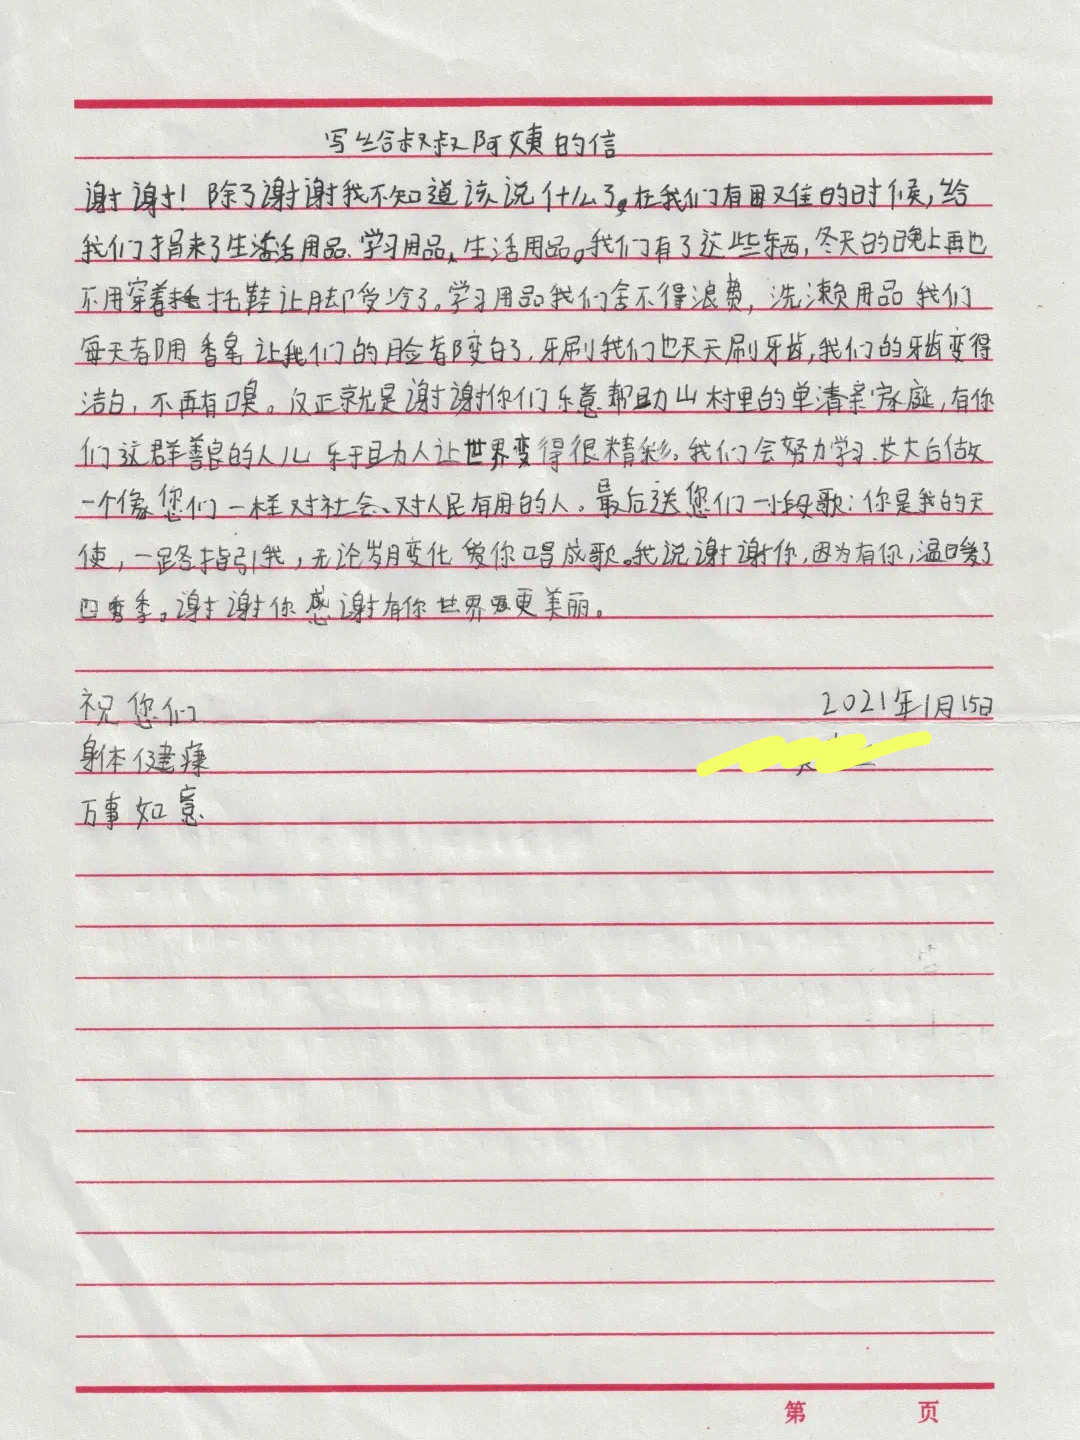 写给叔叔阿姨的信
谢谢！除了谢谢我不知道该说什么了。在我们有困难的时候，给
我们捐来了生活用品、学习用品、生活用品。我们有了这些东西，冬天的晚上再也
不用穿着拖鞋让脚受冷了。学习用品我们舍不得浪费，洗濑用品我们
每天都用香皂让我们的脸都变白了，牙刷我们也天天刷牙齿，我们的牙齿变得
洁白，不再有嗅。反正就是谢谢你们乐意帮助山村里的单清亲家庭，有你
们这群善良的人儿乐于助人让世界变得很精彩。我们会努力学习、长大后做
一个像您们一样对社会、对人民有用的人。最后送您们一小段歌：你是我的天
使，一路指引我，无论岁月变化 爱你唱成歌。我说谢谢你，因为有你，温暖了
四季。谢谢你 感谢有你 世界更美丽。
祝您们
2021年1月15日
身体健康
万事如意
第 页